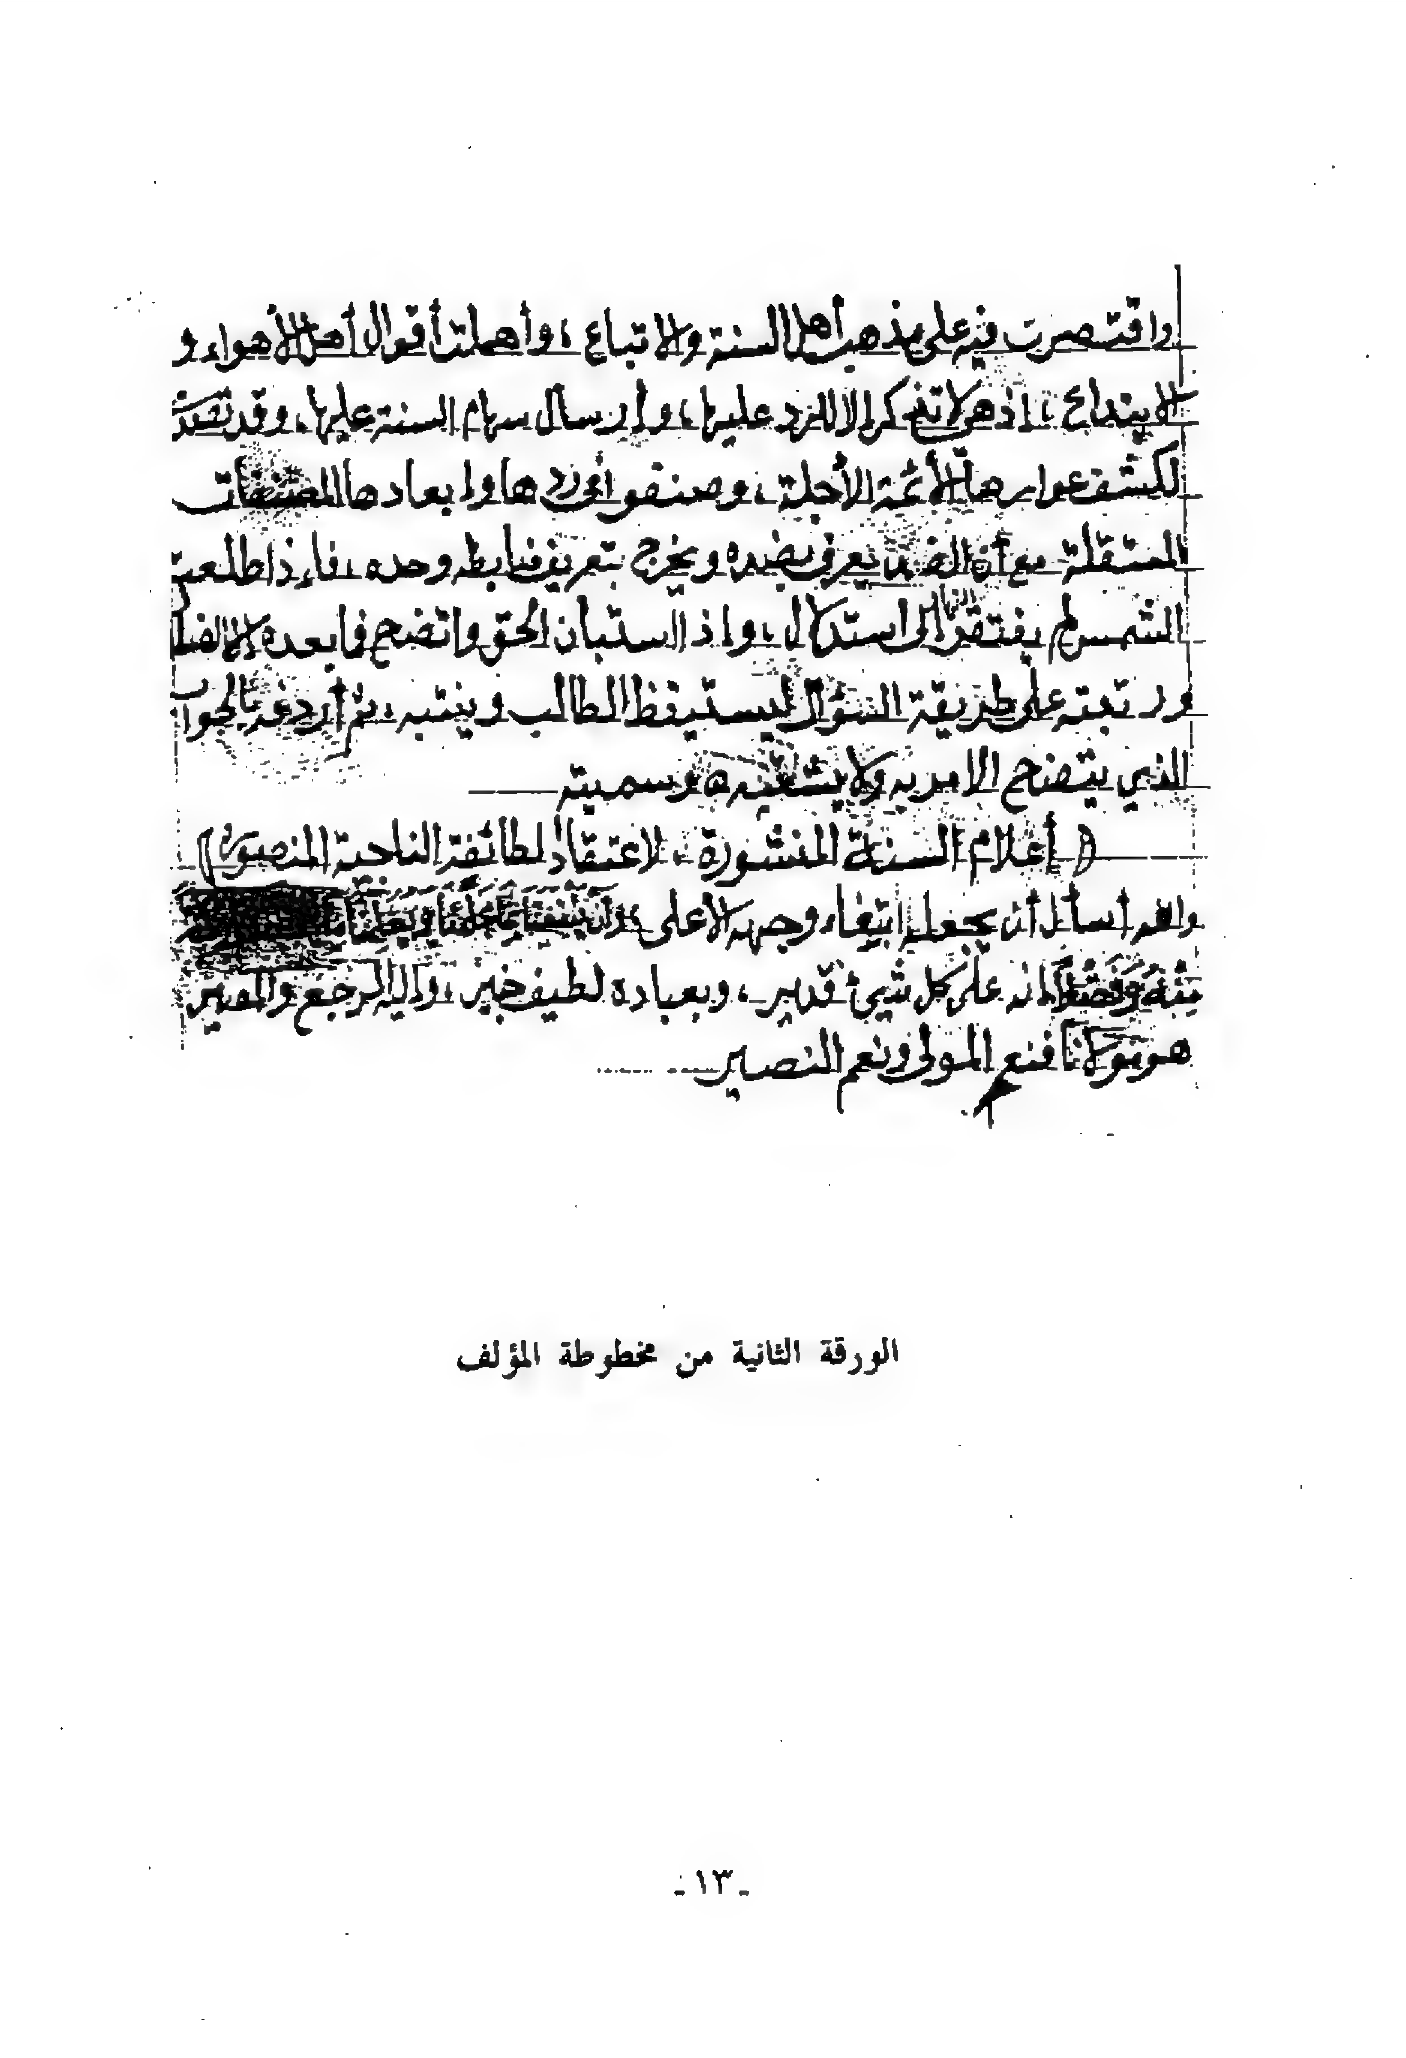 واقتصرت فيه على مذهب أهل السنة والاتباع ، وأهملت أقوال أهل الأهواء و
الابتداع ، إذ هي لا تذكر إلا للرد عليها ، وإرسال سهام السنة عليها ، وقد تصدى
لكشف عوارها الأئمة الأجلة ، وصنفوا في ردها وإبعادها المصنفات
المستقلة مع أن الضد يعرف بضده ويخرج بتعريف ضابطه وحده ، فإذا طلعت
الشمس لم يفتقر النهار إلى استدلال ، وإذا استبان الحق واتضح فما بعده إلا الضلال
ورتبته على طريقة السؤال ليستيقظ الطالب وينتبه ، ثم أردفه بالجواب
الذي يتضح الأمر به ولا يشتبه وسميته
( أعلام السنة المنشورة ، لاعتقاد الطائفة الناجية المنصورة )
والله أسأل أن يجعله ابتغاء وجهه الأعلى ، وأن ينفعنا بما علمنا ويعلمنا
منه وفضلا إنه على كل شيء قدير ، وبعباده لطيف خبير ، وإليه المرجع والمصير
هو مولانا فنعم المولى ونعم النصير
الورقة الثانية من مخطوطة المؤلف
ـ ١٣ ـ